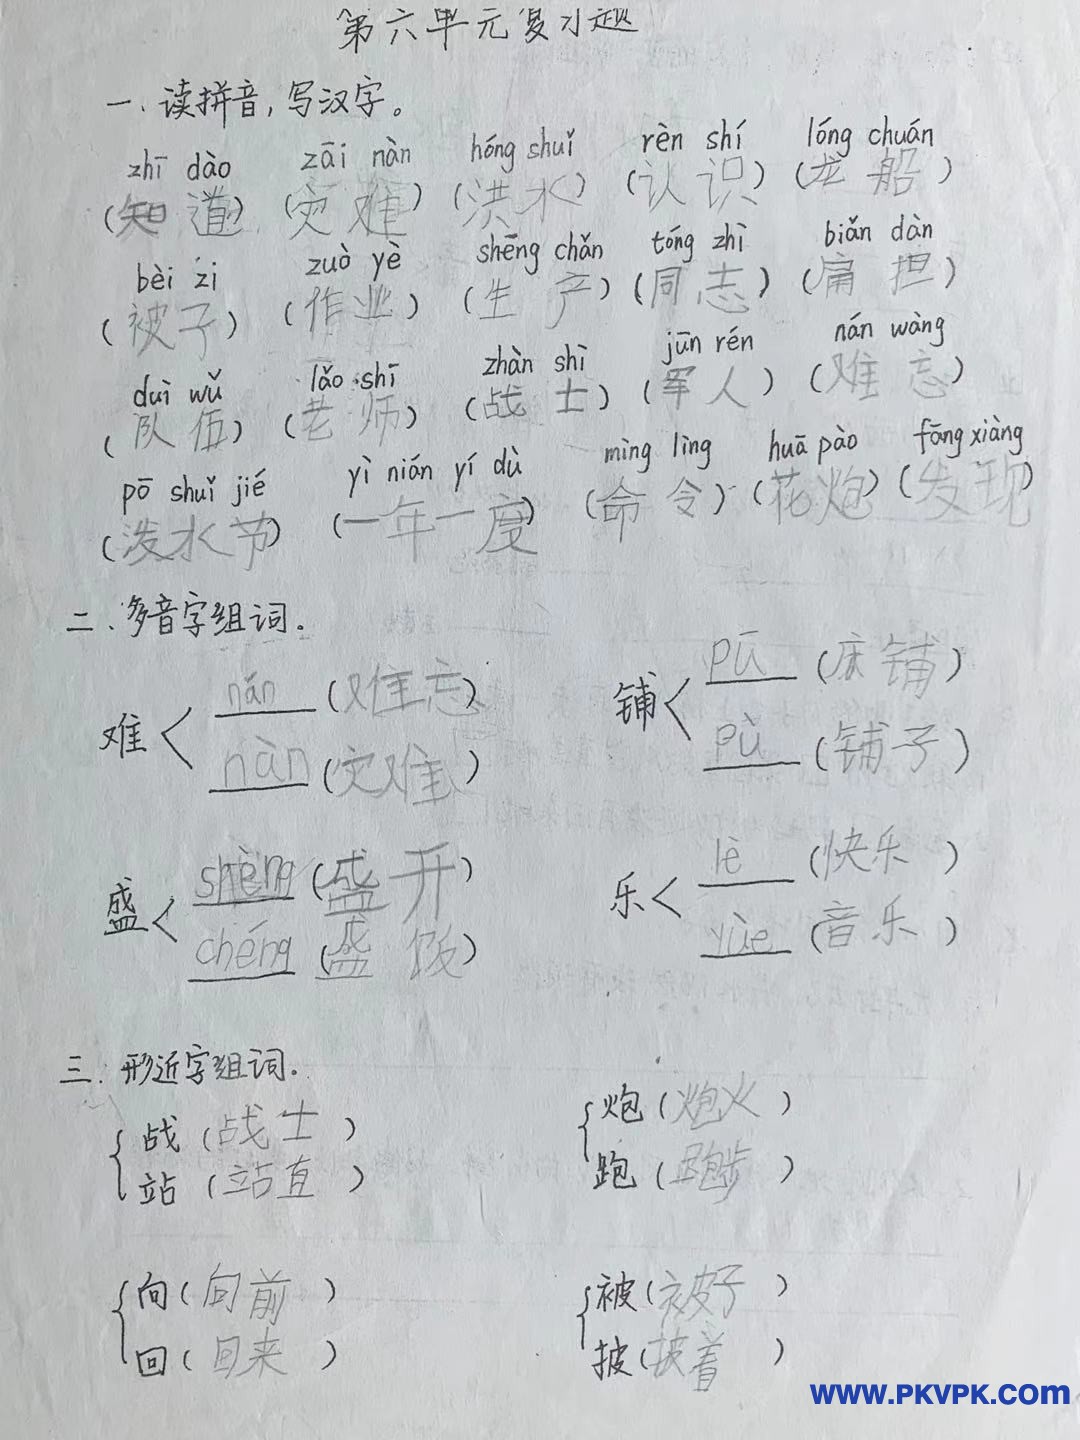 第六单元复习题
一、读拼音,写汉字。
zhī dào zāi nàn hóng shuǐ rèn shí lóng chuán
(知道) (灾难) (洪水) (认识) (龙船)
bèi zi zuò yè shēng chǎn tóng zhì biǎn dàn
(被子) (作业) (生产) (同志) (扁担)
duì wǔ lǎo shī zhàn shì jūn rén nán wàng
(队伍) (老师) (战士) (军人) (难忘)
pō shuǐ jié yì nián yí dù mìng lìng huā pào fāng xiàng
(泼水节) (一年一度) (命令) (花炮) (发现)
二、多音字组词.
难< nán (难忘) 铺< pū (床铺)
nàn (灾难) pù (铺子)
盛< shèng (盛开) 乐< lè (快乐)
chéng (盛饭) yùe (音乐)
三、形近字组词.
战(战士) 炮(炮火)
站(站直) 跑(跑步)
向(向前) 被(被子)
回(回来) 披(披着)
www.PKVPK.com